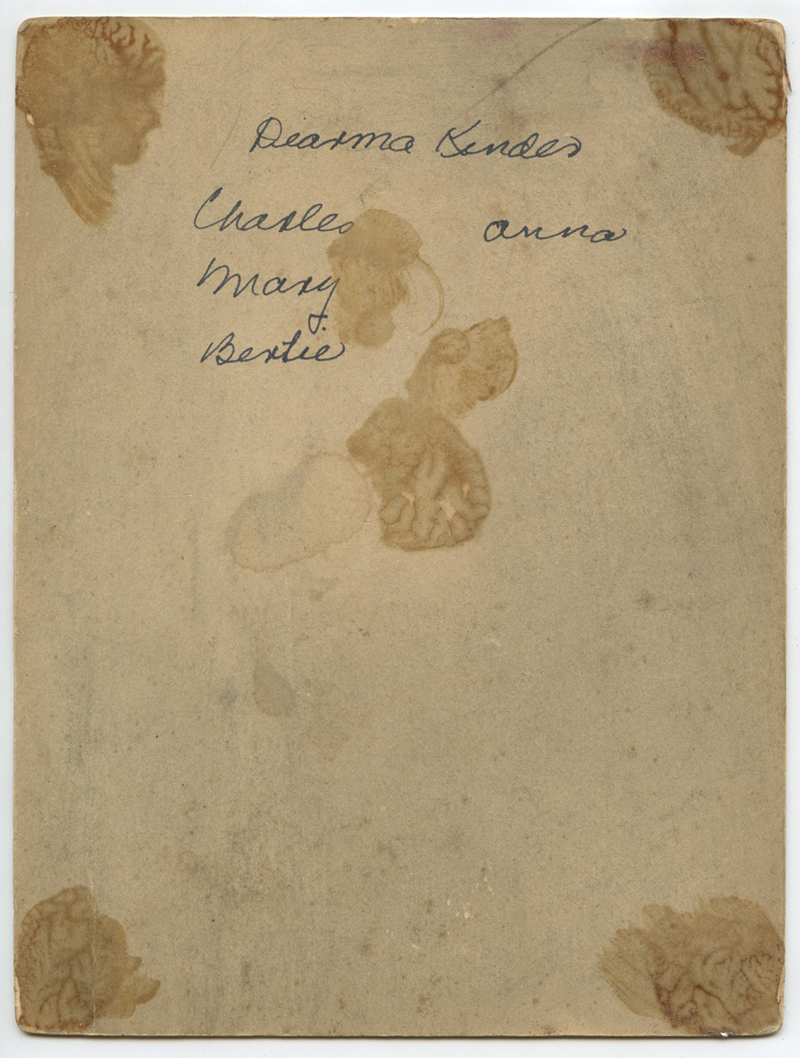 Dearma Kinder
Charles anna
Mary
Bertie